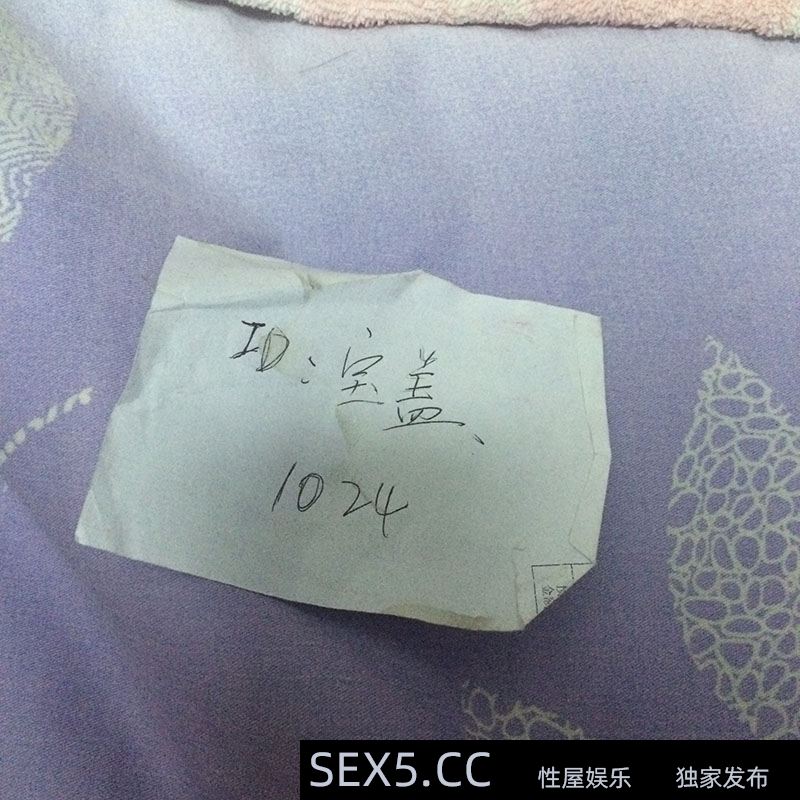 ID:宝盖、
1024
SEX5.CC 性屋娱乐 独家发布